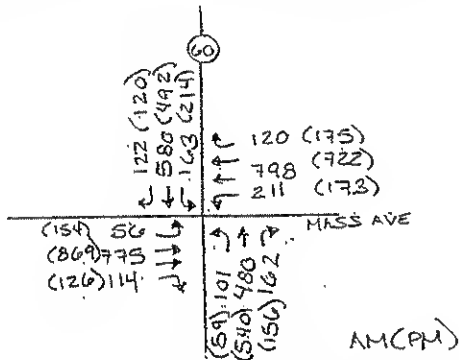 60
122 (120)
580 (492)
163 (214)
120 (175)
798 (722)
211 (173)
MASS AVE
(154) 56
(869) 775
(126) 114
(59) 101
(540) 480
(156) 162
AM(PM)